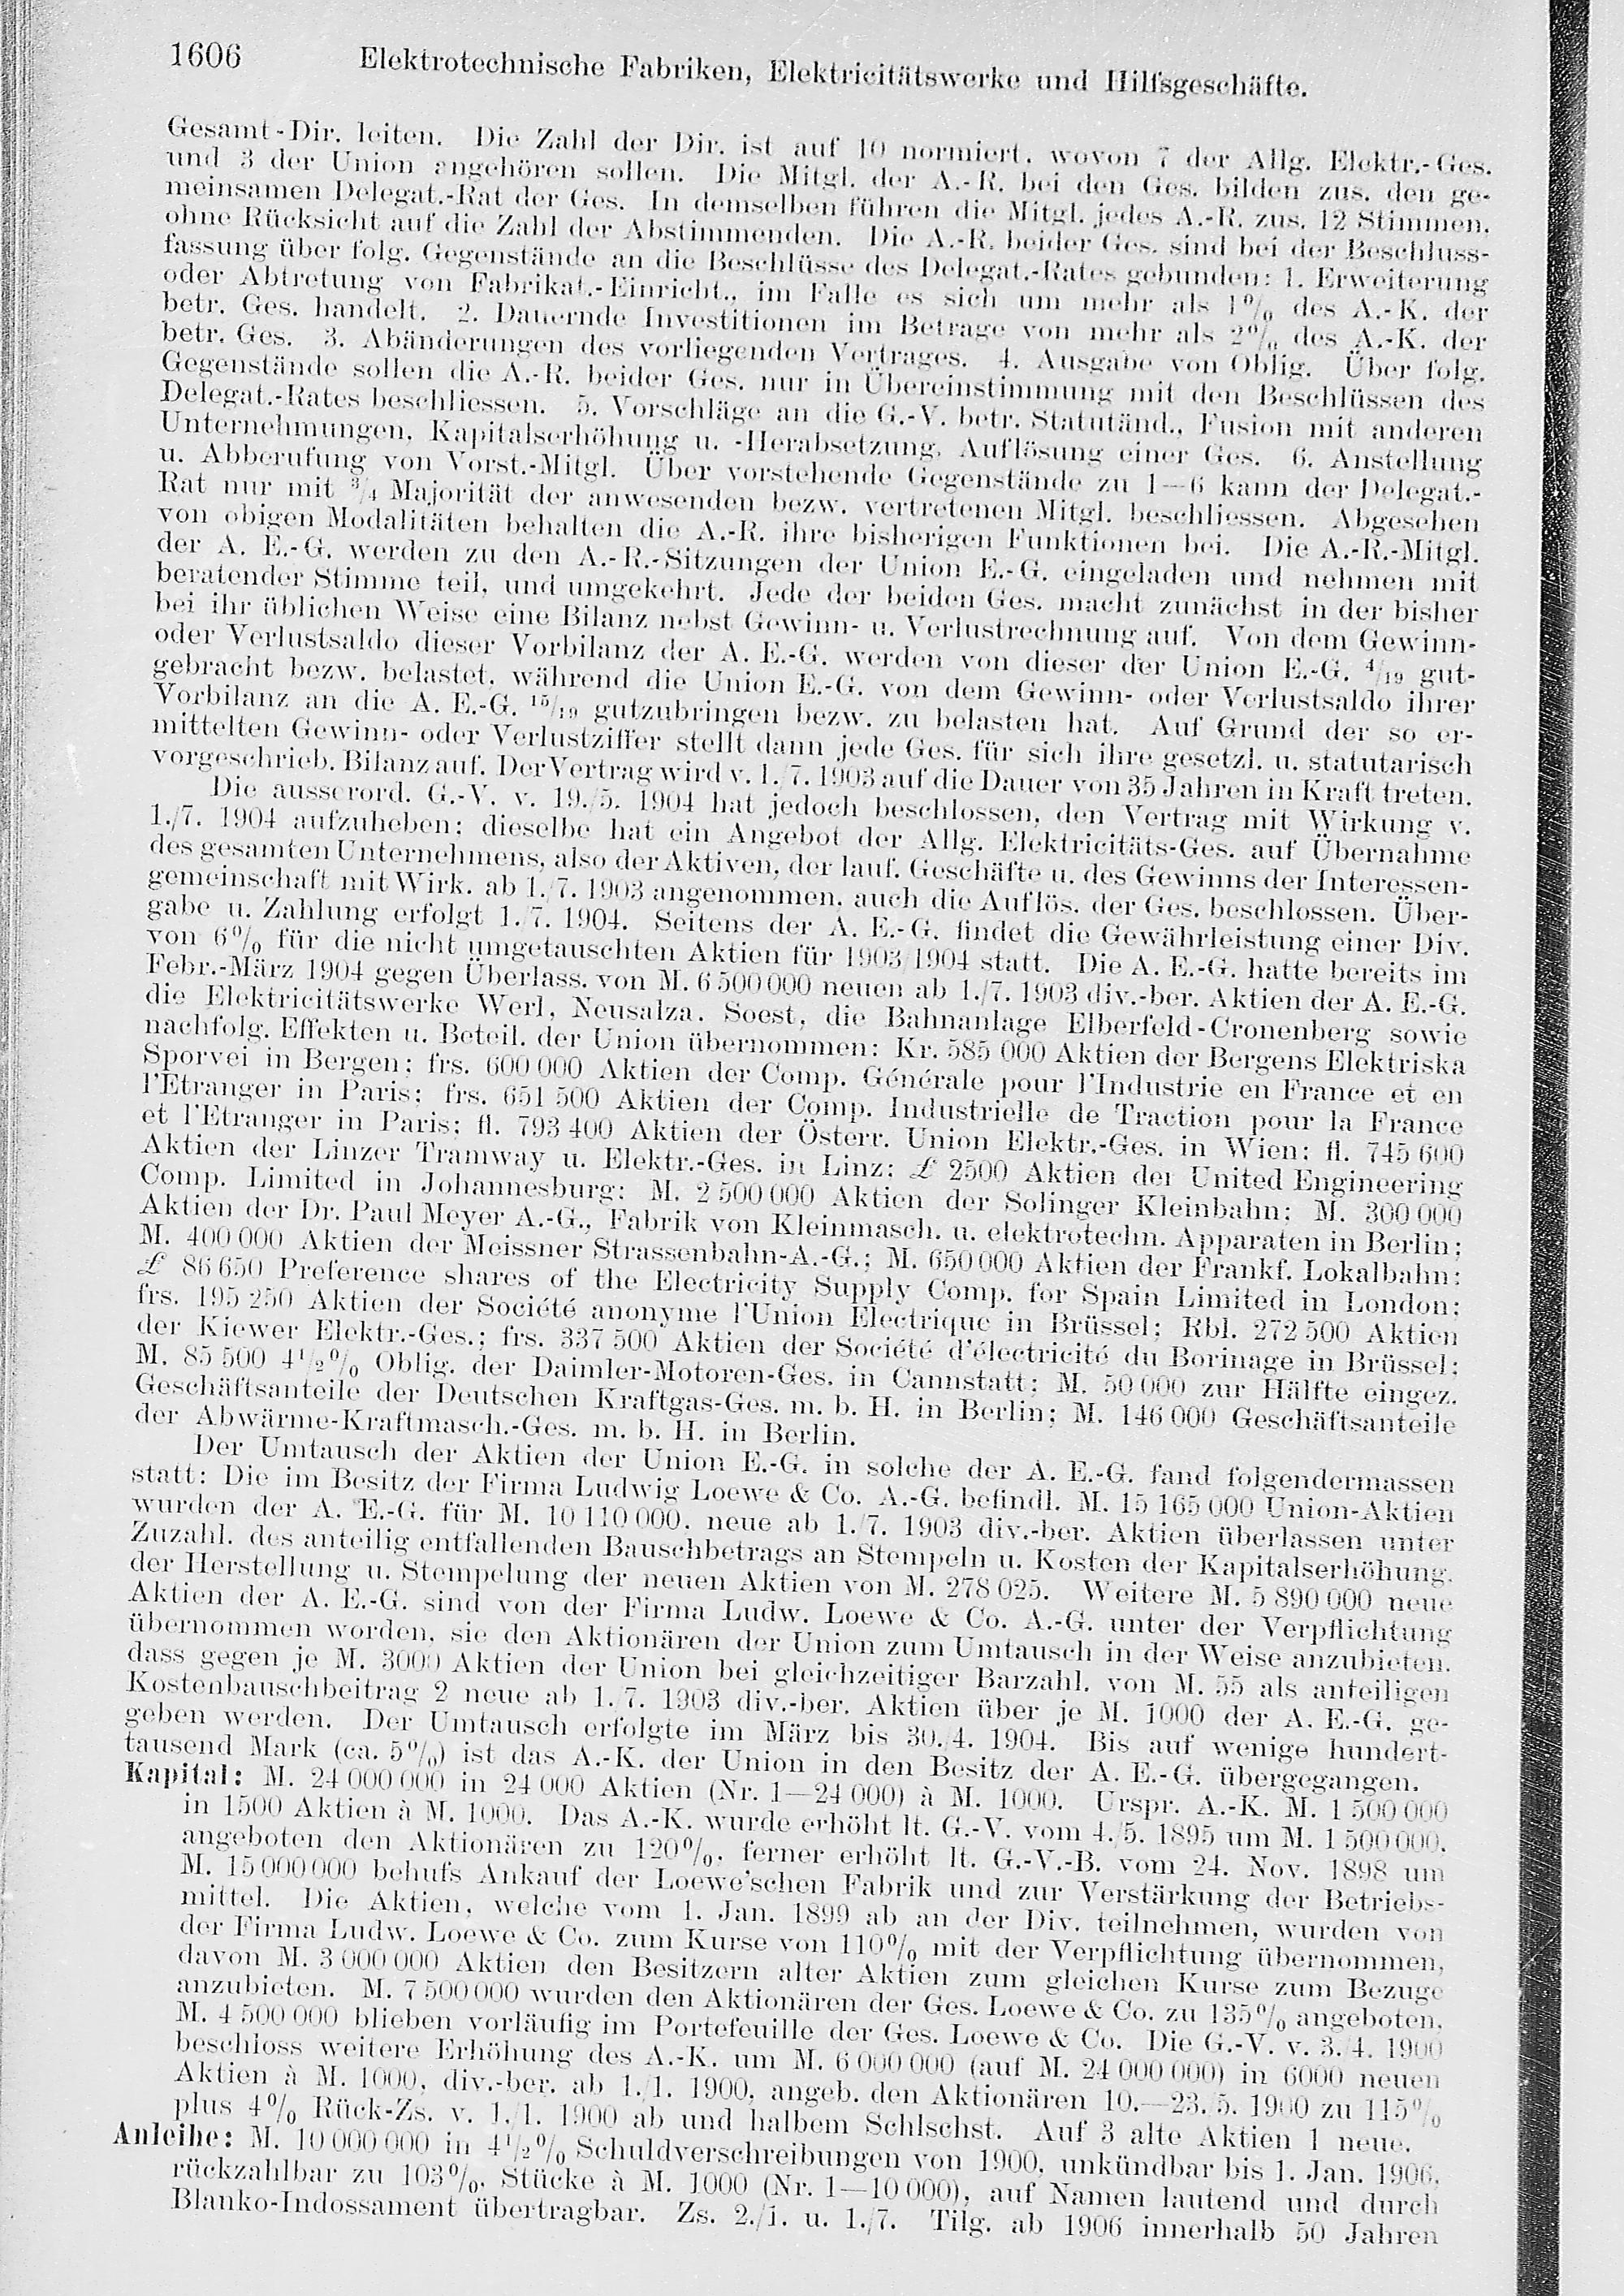 1606 Elektrotechnische Fabriken, Elektricitätswerke und Hilfsgeschäfte.
Gesamt-Dir. leiten. Die Zahl der Dir. ist auf 10 normiert, wovon 7 der Allg. Elektr.-Ges.
und 3 der Union angehören sollen. Die Mitgl. der A.-R. bei den Ges. bilden zus. den ge-
meinsamen Delegat.-Rat der Ges. In demselben führen die Mitgl. jedes A.-R. zus. 12 Stimmen,
ohne Rücksicht auf die Zahl der Abstimmenden. Die A.-R. beider Ges. sind bei der Beschluss-
fassung über folg. Gegenstände an die Beschlüsse des Delegat.-Rates gebunden: 1. Erweiterung
oder Abtretung von Fabrikat.-Einricht., im Falle es sich um mehr als 1% des A.-K. der
betr. Ges. handelt. 2. Dauernde Investitionen im Betrage von mehr als 2% des A.-K. der
betr. Ges. 3. Abänderungen des vorliegenden Vertrages. 4. Ausgabe von Oblig. Über folg.
Gegenstände sollen die A.-R. beider Ges. nur in Übereinstimmung mit den Beschlüssen des
Delegat.-Rates beschliessen. 5. Vorschläge an die G.-V. betr. Statutänd., Fusion mit anderen
Unternehmungen, Kapitalserhöhung u. -Herabsetzung, Auflösung einer Ges. 6. Anstellung
u. Abberufung von Vorst.-Mitgl. Über vorstehende Gegenstände zu 1—6 kann der Delegat.-
Rat nur mit 3/4 Majorität der anwesenden bezw. vertretenen Mitgl. beschliessen. Abgesehen
von obigen Modalitäten behalten die A.-R. ihre bisherigen Funktionen bei. Die A.-R.-Mitgl.
der A. E.-G. werden zu den A.-R.-Sitzungen der Union E.-G. eingeladen und nehmen mit
beratender Stimme teil, und umgekehrt. Jede der beiden Ges. macht zunächst in der bisher
bei ihr üblichen Weise eine Bilanz nebst Gewinn- u. Verlustrechnung auf. Von dem Gewinn-
oder Verlustsaldo dieser Vorbilanz der A. E.-G. werden von dieser der Union E.-G. 4/19 gut-
gebracht bezw. belastet, während die Union E.-G. von dem Gewinn- oder Verlustsaldo ihrer
Vorbilanz an die A. E.-G. 15/19 gutzubringen bezw. zu belasten hat. Auf Grund der so er-
mittelten Gewinn- oder Verlustziffer stellt dann jede Ges. für sich ihre gesetzl. u. statutarisch
vorgeschrieb. Bilanz auf. Der Vertrag wird v. 1./7. 1903 auf die Dauer von 35 Jahren in Kraft treten.
Die ausserord. G.-V. v. 19./5. 1904 hat jedoch beschlossen, den Vertrag mit Wirkung v.
1./7. 1904 aufzuheben; dieselbe hat ein Angebot der Allg. Elektricitäts-Ges. auf Übernahme
des gesamten Unternehmens, also der Aktiven, der lauf. Geschäfte u. des Gewinns der Interessen-
gemeinschaft mit Wirk. ab 1./7. 1903 angenommen, auch die Auflös. der Ges. beschlossen. Über-
gabe u. Zahlung erfolgt 1./7. 1904. Seitens der A. E.-G. findet die Gewährleistung einer Div.
von 6% für die nicht umgetauschten Aktien für 1903/1904 statt. Die A. E.-G. hatte bereits im
Febr.-März 1904 gegen Überlass. von M. 6 500 000 neuen ab 1./7. 1903 div.-ber. Aktien der A. E.-G.
die Elektricitätswerke Werl, Neusalza, Soest, die Bahnanlage Elberfeld-Cronenberg sowie
nachfolg. Effekten u. Beteil. der Union übernommen: Kr. 585 000 Aktien der Bergens Elektriska
Sporvei in Bergen; frs. 600 000 Aktien der Comp. Générale pour l'Industrie en France et en
l'Etranger in Paris; frs. 651 500 Aktien der Comp. Industrielle de Traction pour la France
et l'Etranger in Paris; fl. 793 400 Aktien der Österr. Union Elektr.-Ges. in Wien; fl. 745 600
Aktien der Linzer Tramway u. Elektr.-Ges. in Linz; £ 2500 Aktien der United Engineering
Comp. Limited in Johannesburg; M. 2 500 000 Aktien der Solinger Kleinbahn; M. 300 000
Aktien der Dr. Paul Meyer A.-G., Fabrik von Kleinmasch. u. elektrotechn. Apparaten in Berlin;
M. 400 000 Aktien der Meissner Strassenbahn-A.-G.; M. 650 000 Aktien der Frankf. Lokalbahn;
£ 86 650 Preference shares of the Electricity Supply Comp. for Spain Limited in London;
frs. 195 250 Aktien der Société anonyme l'Union Electrique in Brüssel; Rbl. 272 500 Aktien
der Kiewer Elektr.-Ges.; frs. 337 500 Aktien der Société d'électricité du Borinage in Brüssel;
M. 85 500 4 1/2% Oblig. der Daimler-Motoren-Ges. in Cannstatt; M. 50 000 zur Hälfte eingez.
Geschäftsanteile der Deutschen Kraftgas-Ges. m. b. H. in Berlin; M. 146 000 Geschäftsanteile
der Abwärme-Kraftmasch.-Ges. m. b. H. in Berlin.
Der Umtausch der Aktien der Union E.-G. in solche der A. E.-G. fand folgendermassen
statt: Die im Besitz der Firma Ludwig Loewe & Co. A.-G. befindl. M. 15 165 000 Union-Aktien
wurden der A. E.-G. für M. 10 110 000, neue ab 1./7. 1903 div.-ber. Aktien überlassen unter
Zuzahl. des anteilig entfallenden Bauschbetrags an Stempeln u. Kosten der Kapitalserhöhung,
der Herstellung u. Stempelung der neuen Aktien von M. 278 025. Weitere M. 5 890 000 neue
Aktien der A. E.-G. sind von der Firma Ludw. Loewe & Co. A.-G. unter der Verpflichtung
übernommen worden, sie den Aktionären der Union zum Umtausch in der Weise anzubieten,
dass gegen je M. 3000 Aktien der Union bei gleichzeitiger Barzahl. von M. 55 als anteiligen
Kostenbauschbeitrag 2 neue ab 1./7. 1903 div.-ber. Aktien über je M. 1000 der A. E.-G. ge-
geben werden. Der Umtausch erfolgte im März bis 30./4. 1904. Bis auf wenige hundert-
tausend Mark (ca. 5%) ist das A.-K. der Union in den Besitz der A. E.-G. übergegangen.
Kapital: M. 24 000 000 in 24 000 Aktien (Nr. 1—24 000) à M. 1000. Urspr. A.-K. M. 1 500 000
in 1500 Aktien à M. 1000. Das A.-K. wurde erhöht lt. G.-V. vom 4./5. 1895 um M. 1 500 000,
angeboten den Aktionären zu 120%, ferner erhöht lt. G.-V.-B. vom 24. Nov. 1898 um
M. 15 000 000 behufs Ankauf der Loewe'schen Fabrik und zur Verstärkung der Betriebs-
mittel. Die Aktien, welche vom 1. Jan. 1899 ab an der Div. teilnehmen, wurden von
der Firma Ludw. Loewe & Co. zum Kurse von 110% mit der Verpflichtung übernommen,
davon M. 3 000 000 Aktien den Besitzern alter Aktien zum gleichen Kurse zum Bezuge
anzubieten. M. 7 500 000 wurden den Aktionären der Ges. Loewe & Co. zu 135% angeboten,
M. 4 500 000 blieben vorläufig im Portefeuille der Ges. Loewe & Co. Die G.-V. v. 3./4. 1900
beschloss weitere Erhöhung des A.-K. um M. 6 000 000 (auf M. 24 000 000) in 6000 neuen
Aktien à M. 1000, div.-ber. ab 1./1. 1900, angeb. den Aktionären 10.—23./5. 1900 zu 115%
plus 4% Rück-Zs. v. 1./1. 1900 ab und halbem Schlschst. Auf 3 alte Aktien 1 neue.
Anleihe: M. 10 000 000 in 4 1/2% Schuldverschreibungen von 1900, unkündbar bis 1. Jan. 1906,
rückzahlbar zu 103%. Stücke à M. 1000 (Nr. 1—10 000), auf Namen lautend und durch
Blanko-Indossament übertragbar. Zs. 2./1. u. 1./7. Tilg. ab 1906 innerhalb 50 Jahren